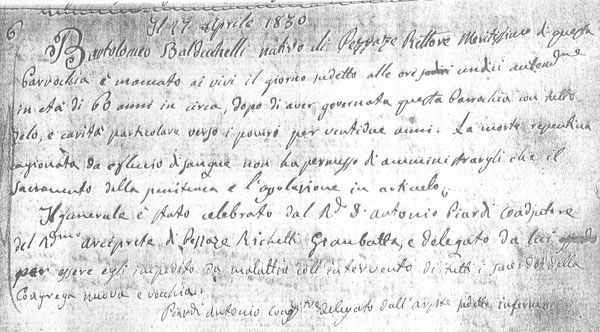 6
Il 27 Aprile 1830
Bartolomeo Balduchelli nativo di Pezzaze Rettore Meritissimo di questa
Parrochia è mancato ai vivi il giorno sudetto alle ore undici
in età di 60 anni in circa, dopo di aver governata questa Parrochia con tutto
zelo, e carità particolare verso i poveri per ventidue anni. La morte repentina
cagionata da efluscio di sangue non ha permesso di amministrargli che il
Sacramento della penitenza e l'assoluzione in articulo.
Il funerale è stato celebrato dal Rd. D. Antonio Piardi Coadjutore
del Rdmo arciprete di Pezzaze Richetti Giambatta, e delegato da lui
per essere egli impedito da malattia coll'intervento di tutti i sacerdoti della
Congrega nuova e vecchia.
Piardi Antonio Coad.re delegato dall'arcipte sudetto infermo